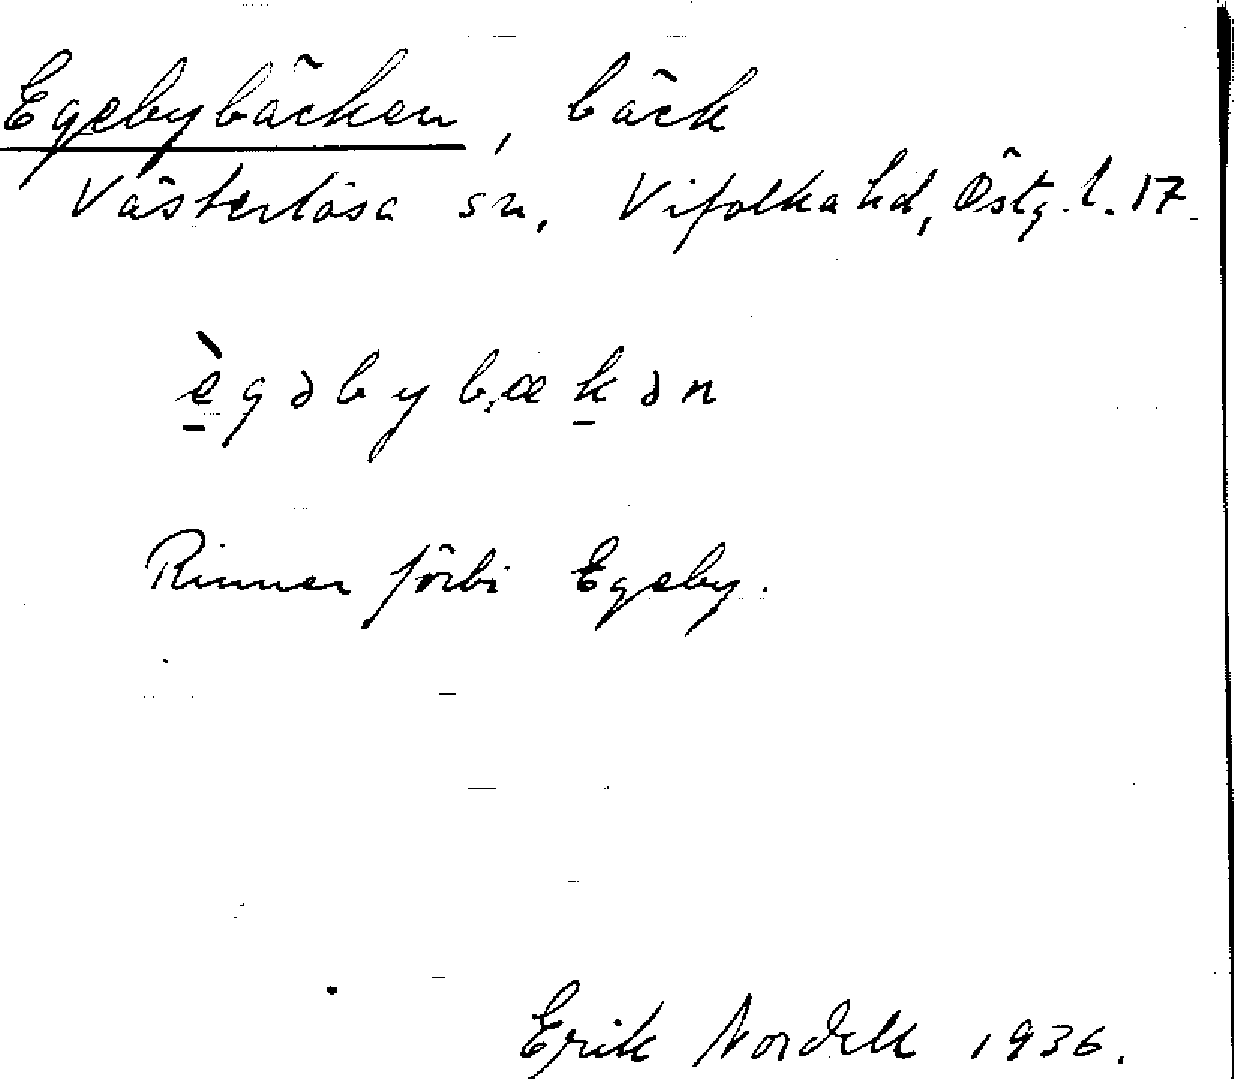 Egebybäcken, bäck
Västerlösa sn, Vifolka hd, Östg. l. 17.
è̠gəbybæk̠ən
Rinner förbi Egeby.
Erik Nordell 1936.